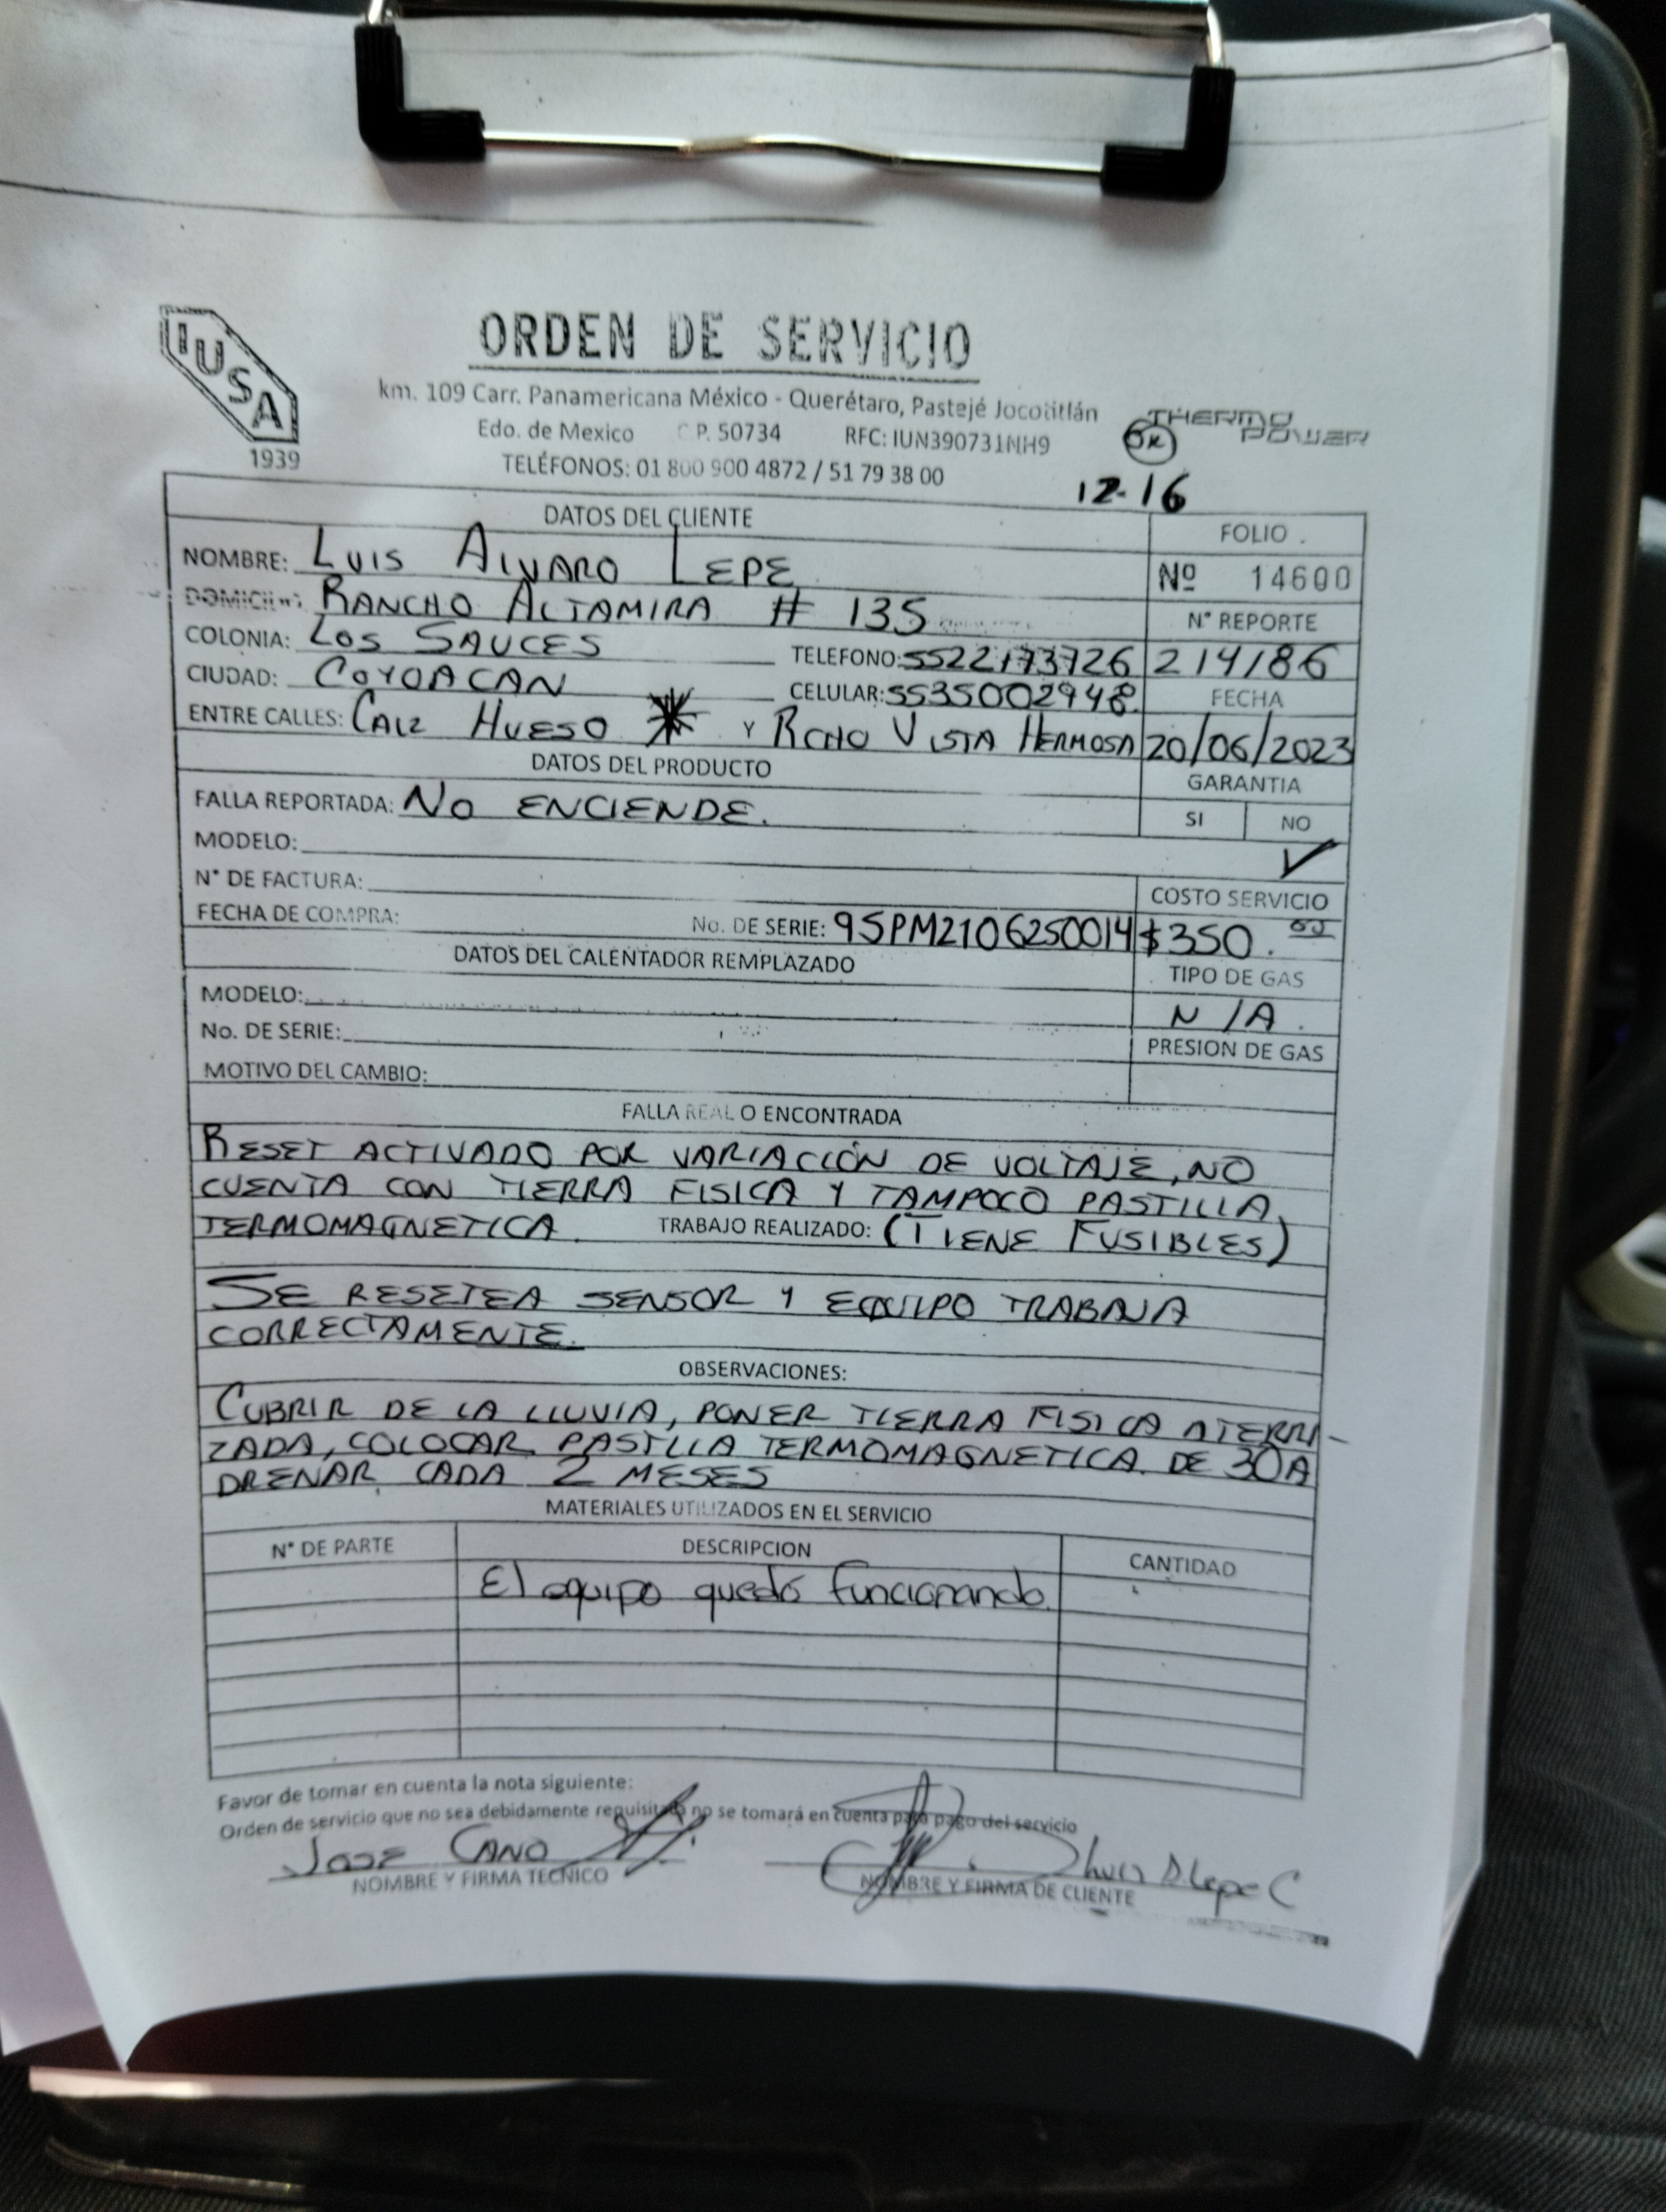 IUSA
1939
ORDEN DE SERVICIO
km. 109 Carr. Panamericana México - Querétaro, Pastejé Jocotitlán
Edo. de Mexico C.P. 50734 RFC: IUN390731NH9
TELÉFONOS: 01 800 900 4872 / 51 79 38 00
THERMO
POWER
12-16
DATOS DEL CLIENTE
FOLIO
NOMBRE: LUIS ALVARO LEPE
Nº 14600
DOMICILIO: RANCHO ALTAMIRA # 135
N° REPORTE
COLONIA: LOS SAUCES
TELEFONO: 5522173726
214186
CIUDAD: COYOACAN
CELULAR: 5535002948
FECHA
ENTRE CALLES: CALZ HUESO Y RCHO VISTA HERMOSA
20/06/2023
DATOS DEL PRODUCTO
GARANTIA
FALLA REPORTADA: NO ENCIENDE.
SI NO
MODELO:
✓
N° DE FACTURA:
COSTO SERVICIO
FECHA DE COMPRA: No. DE SERIE: 95PM2106250014
$350.00
DATOS DEL CALENTADOR REMPLAZADO
TIPO DE GAS
MODELO:
N/A.
No. DE SERIE:
PRESION DE GAS
MOTIVO DEL CAMBIO:
FALLA REAL O ENCONTRADA
RESET ACTIVADO POR VARIACIÓN DE VOLTAJE, NO
CUENTA CON TIERRA FISICA Y TAMPOCO PASTILLA
TERMOMAGNETICA. TRABAJO REALIZADO: (TIENE FUSIBLES)
SE RESETEA SENSOR Y EQUIPO TRABAJA
CORRECTAMENTE.
OBSERVACIONES:
CUBRIR DE LA LLUVIA, PONER TIERRA FISICA ATERRI-
ZADA, COLOCAR PASTLLA TERMOMAGNETICA DE 30A
DRENAR CADA 2 MESES
MATERIALES UTILIZADOS EN EL SERVICIO
N° DE PARTE DESCRIPCION CANTIDAD
El equipo quedó funcionando.
Favor de tomar en cuenta la nota siguiente:
Orden de servicio que no sea debidamente requisitada no se tomará en cuenta para pago del servicio
JOSE CANO
NOMBRE Y FIRMA TECNICO
Lepe C
NOMBRE Y FIRMA DE CLIENTE